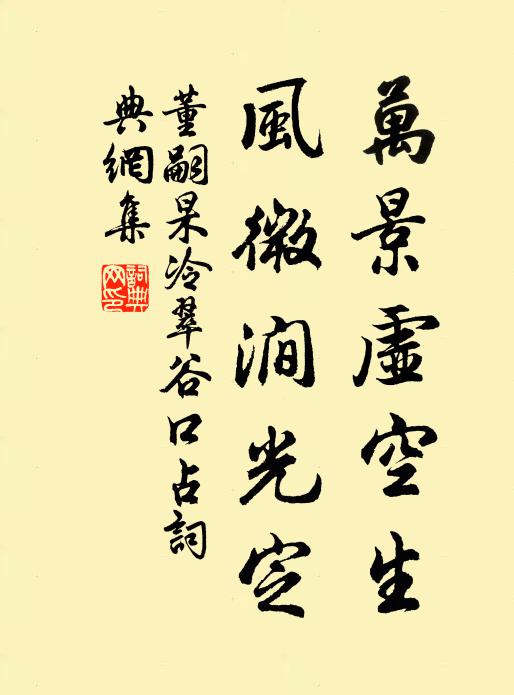 萬景虛空生
風微澗光定
董嗣杲冷翠谷口占詞
典網集
詞典網印